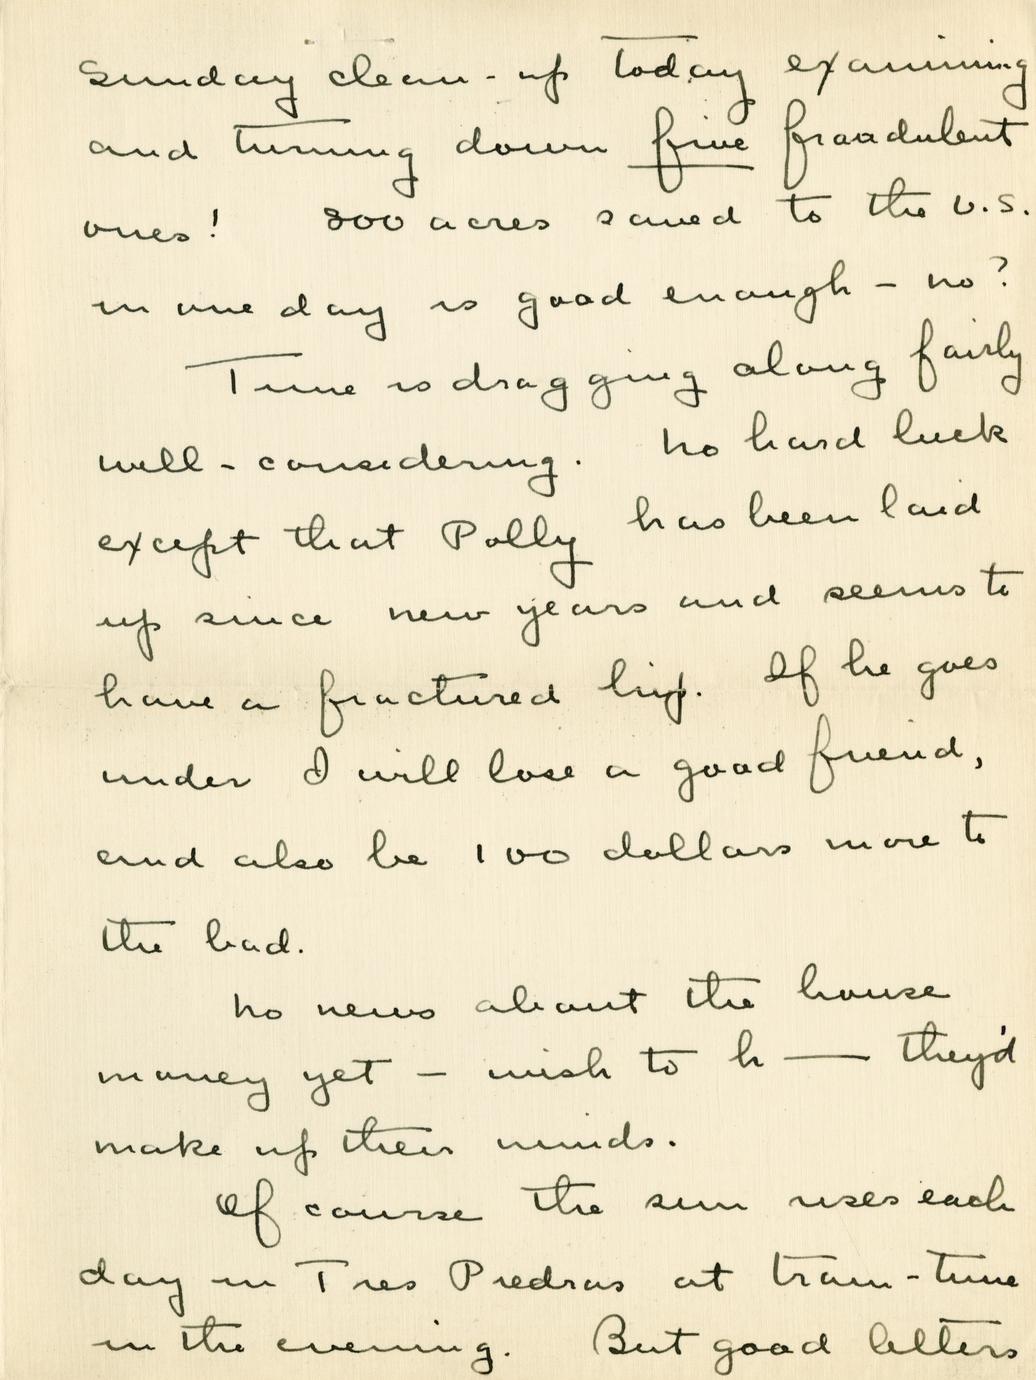 Sunday clean-up today examining
and turning down five fraudulent
ones! 800 acres saved to the U.S.
in one day is good enough - no?
Time is dragging along fairly
well - considering. No hard luck
except that Polly has been laid
up since new years and seems to
have a fractured hip. If he goes
under I will lose a good friend,
and also be 100 dollars more to
the bad.
No news about the house
money yet - wish to h—— they'd
make up their minds.
Of course the sun rises each
day in Tres Piedras at train-time
in the evening. But good letters